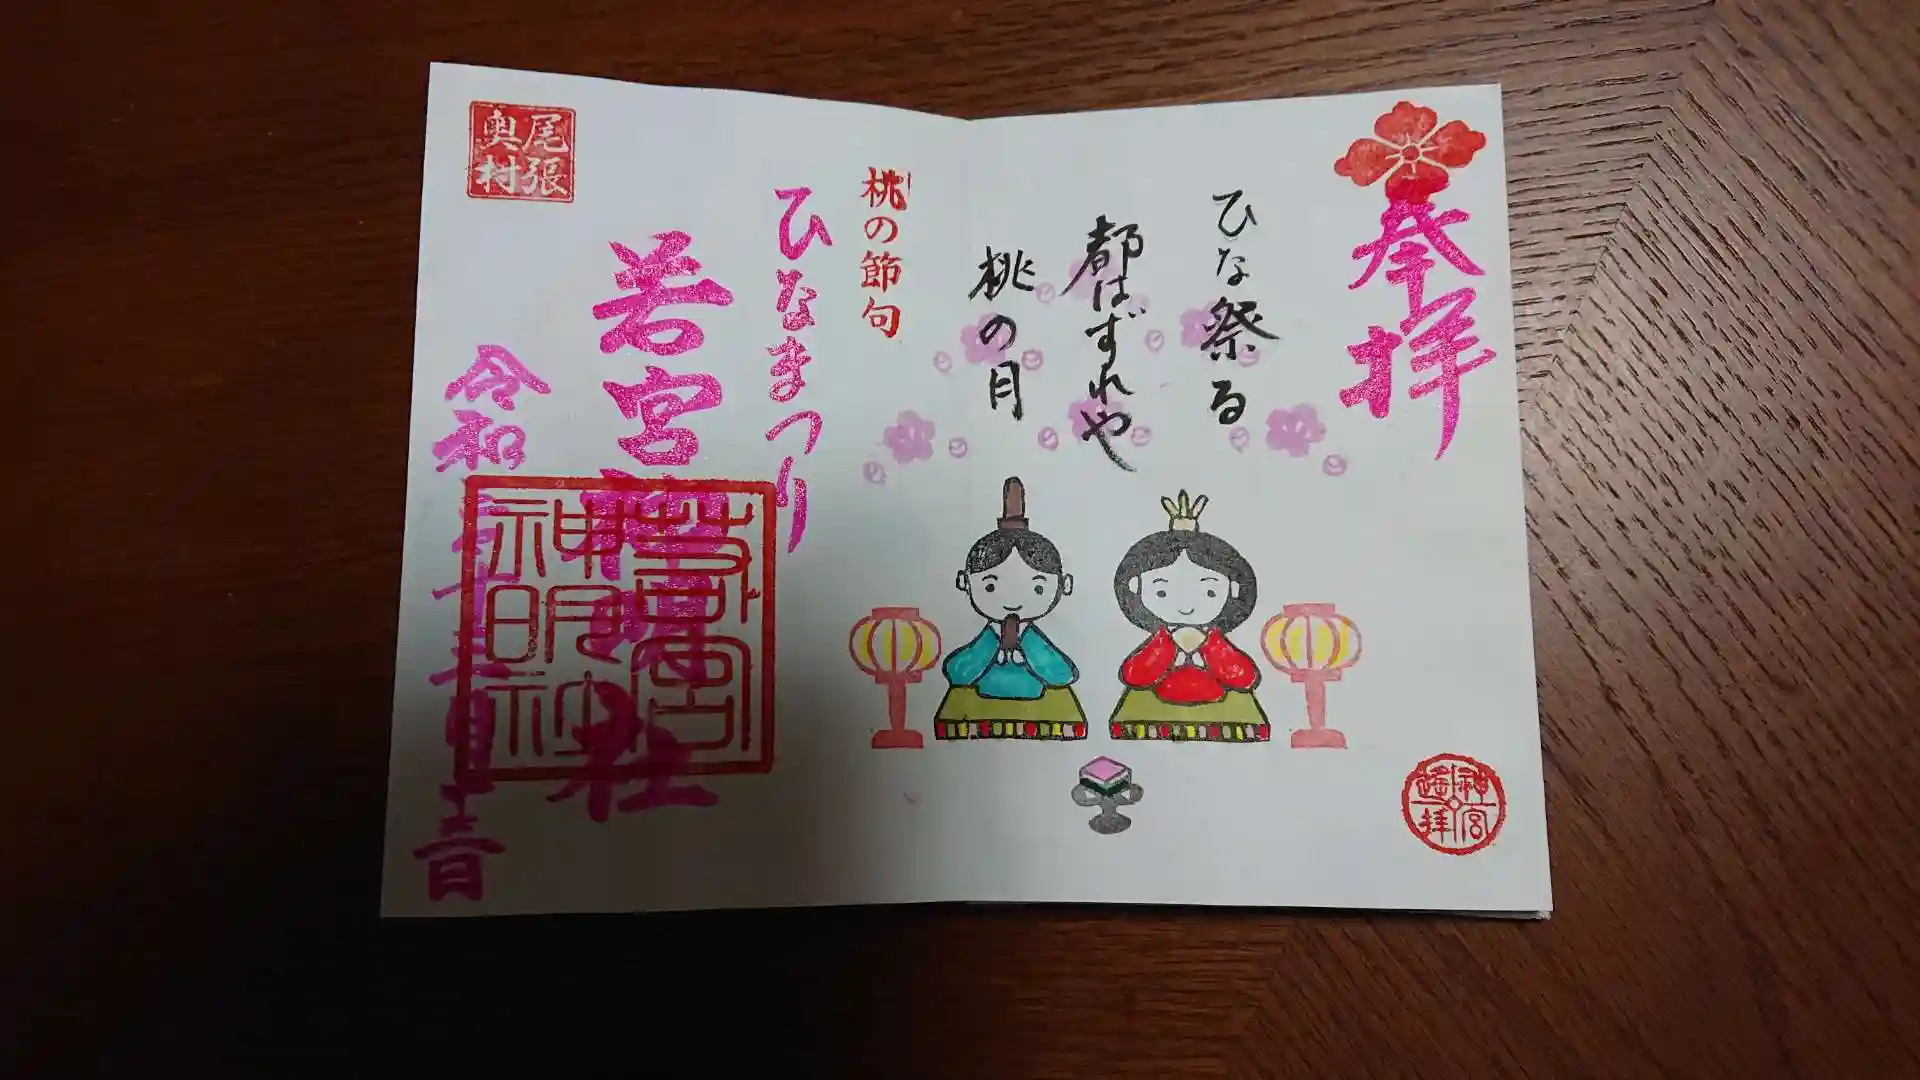 奉拝
ひな祭る
都はずれや
桃の月
神宮
遙拝
桃の節句
ひなまつり
若宮神明社
若宮
神明社
尾張
奥村
令和